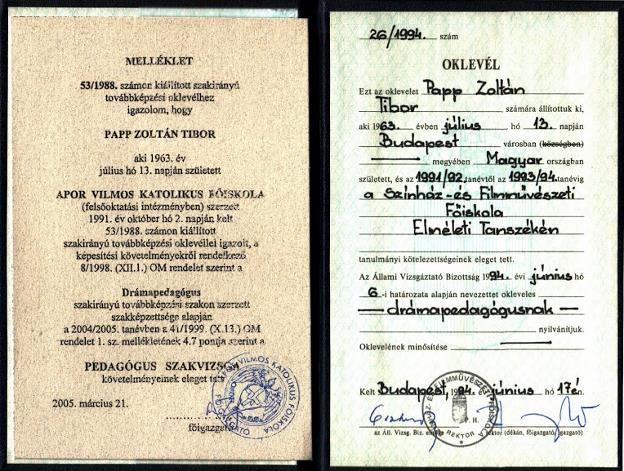 MELLÉKLET
53/1988. számon kiállított szakirányú
továbbképzési oklevélhez
igazolom, hogy
PAPP ZOLTÁN TIBOR
aki 1963. év
július hó 13. napján született
APOR VILMOS KATOLIKUS FŐISKOLA
(felsőoktatási intézményben) szerzett
1991. év október hó 2. napján kelt
53/1988. számon kiállított
szakirányú továbbképzési oklevéllel igazolt, a
képesítési követelményekről rendelkező
8/1998. (XII.1.) OM rendelet szerint a
Drámapedagógus
szakirányú továbbképzési szakon szerzett
szakképzettsége alapján
a 2004/2005. tanévben a 41/1999. (X.13.) OM
rendelet 1. sz. mellékletének 4.7 pontja szerint a
PEDAGÓGUS SZAKVIZSGA
követelményeinek eleget tett
2005. március 21.
főigazgató
VILMOS KATOLIKUS FŐISKOLA
26/1994. szám
OKLEVÉL
Ezt az oklevelet Papp Zoltán
Tibor számára állítottuk ki,
aki 1963. évben július hó 13. napján
Budapest városban (községben)
megyében Magyar országban
született, és az 1991/92. tanévtől az 1993/94. tanévig
a Színház- és Filmművészeti
Főiskola
Elméleti Tanszékén
tanulmányi kötelezettségeinek eleget tett.
Az Állami Vizsgáztató Bizottság 1994. évi június hó
6-i határozata alapján nevezettet okleveles
drámapedagógusnak
nyilvánítjuk.
Oklevelének minősítése
Kelt Budapest, 1994. június hó 17-én.
P. H.
az Áll. Vizsg. Biz. rektor (dékán, főigazgató, igazgató)
REKTOR